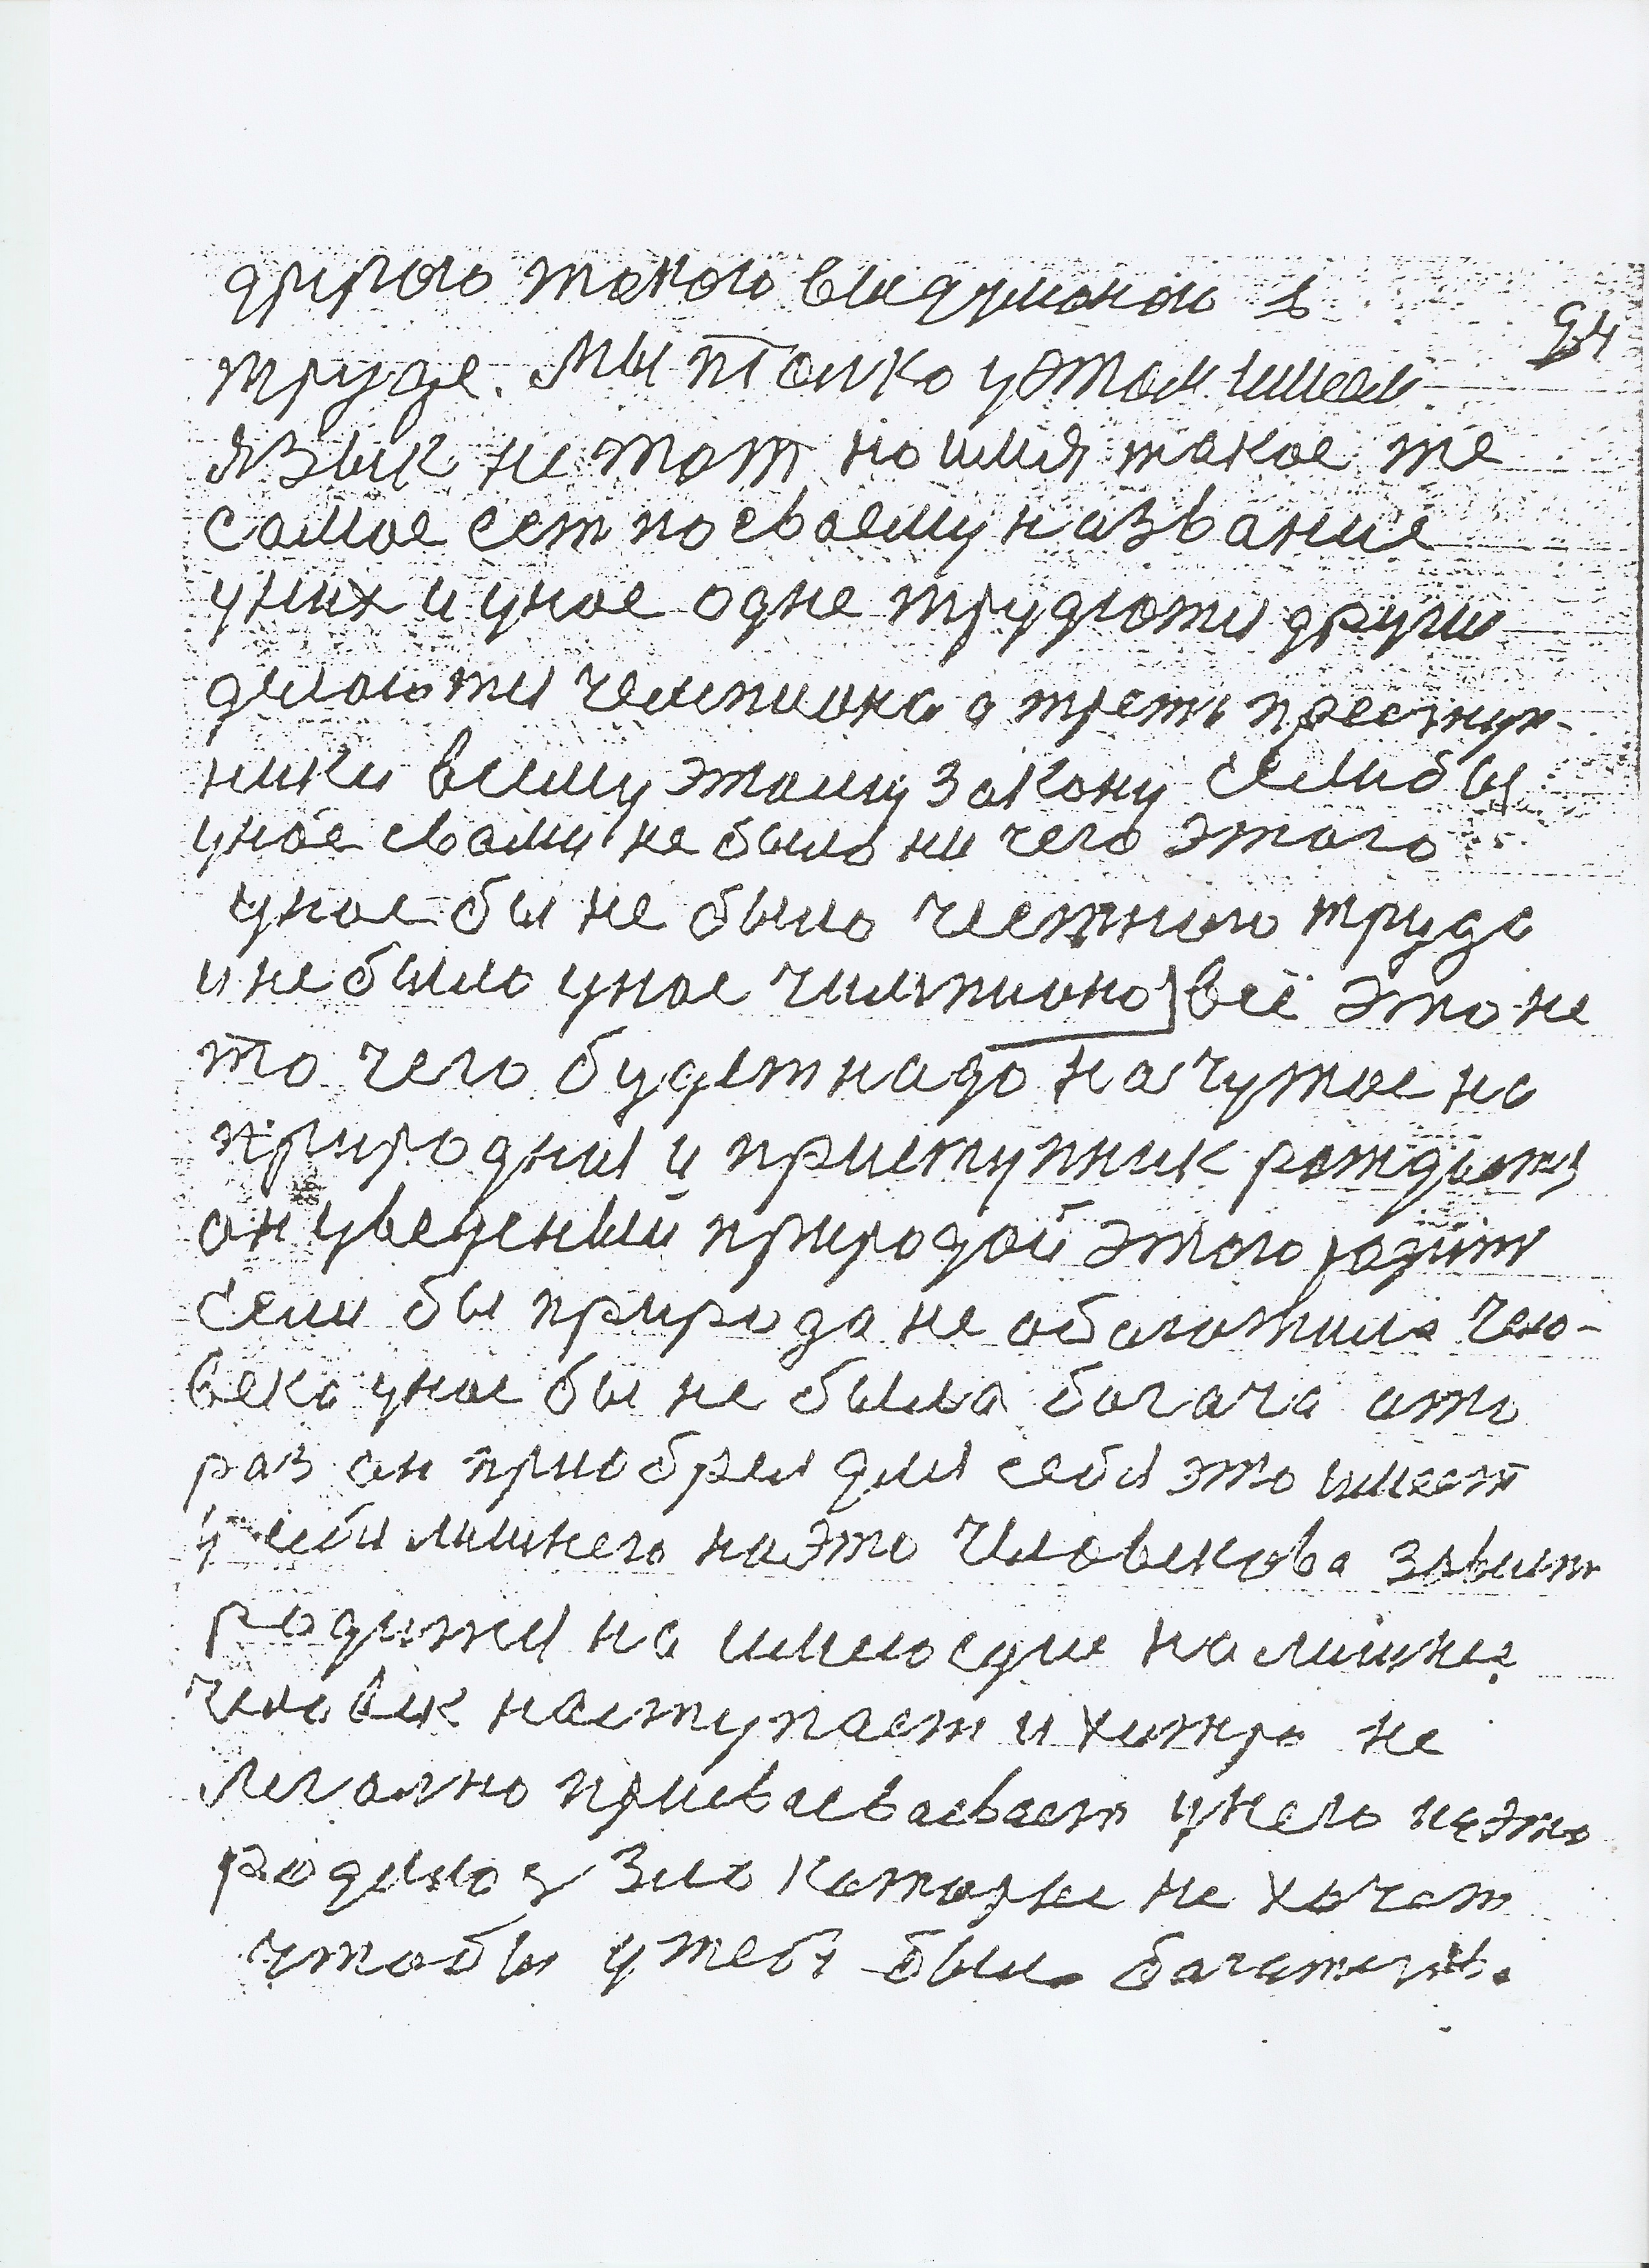 другого такого выдуманого в
94
труде. Мы только у этом имеем
язык не тот но имя такое же
самое ест посваему название
у них и унас одне трудются други
делаются чемпиона а треть преступ-
ники всиму этаму закону если бы
унас свами не было ни чего этого
унас бы не было чесnного труда
и не было унас чимпиона] всё это не
то чего будет надо начутае на
природныя и приступник рождается
он уведеный природой этого родит
если бы природа не обогатила чело-
века унас бы не была богача ато
раз он приобрел для себя это имеет
у себя лишнего на это чиловекова завист
родится на имеюсщие на лишнее
чиловек наступает и хитро не
легално присваевает у него на это
родилос зло которые не хочет
чтобы у тебя была